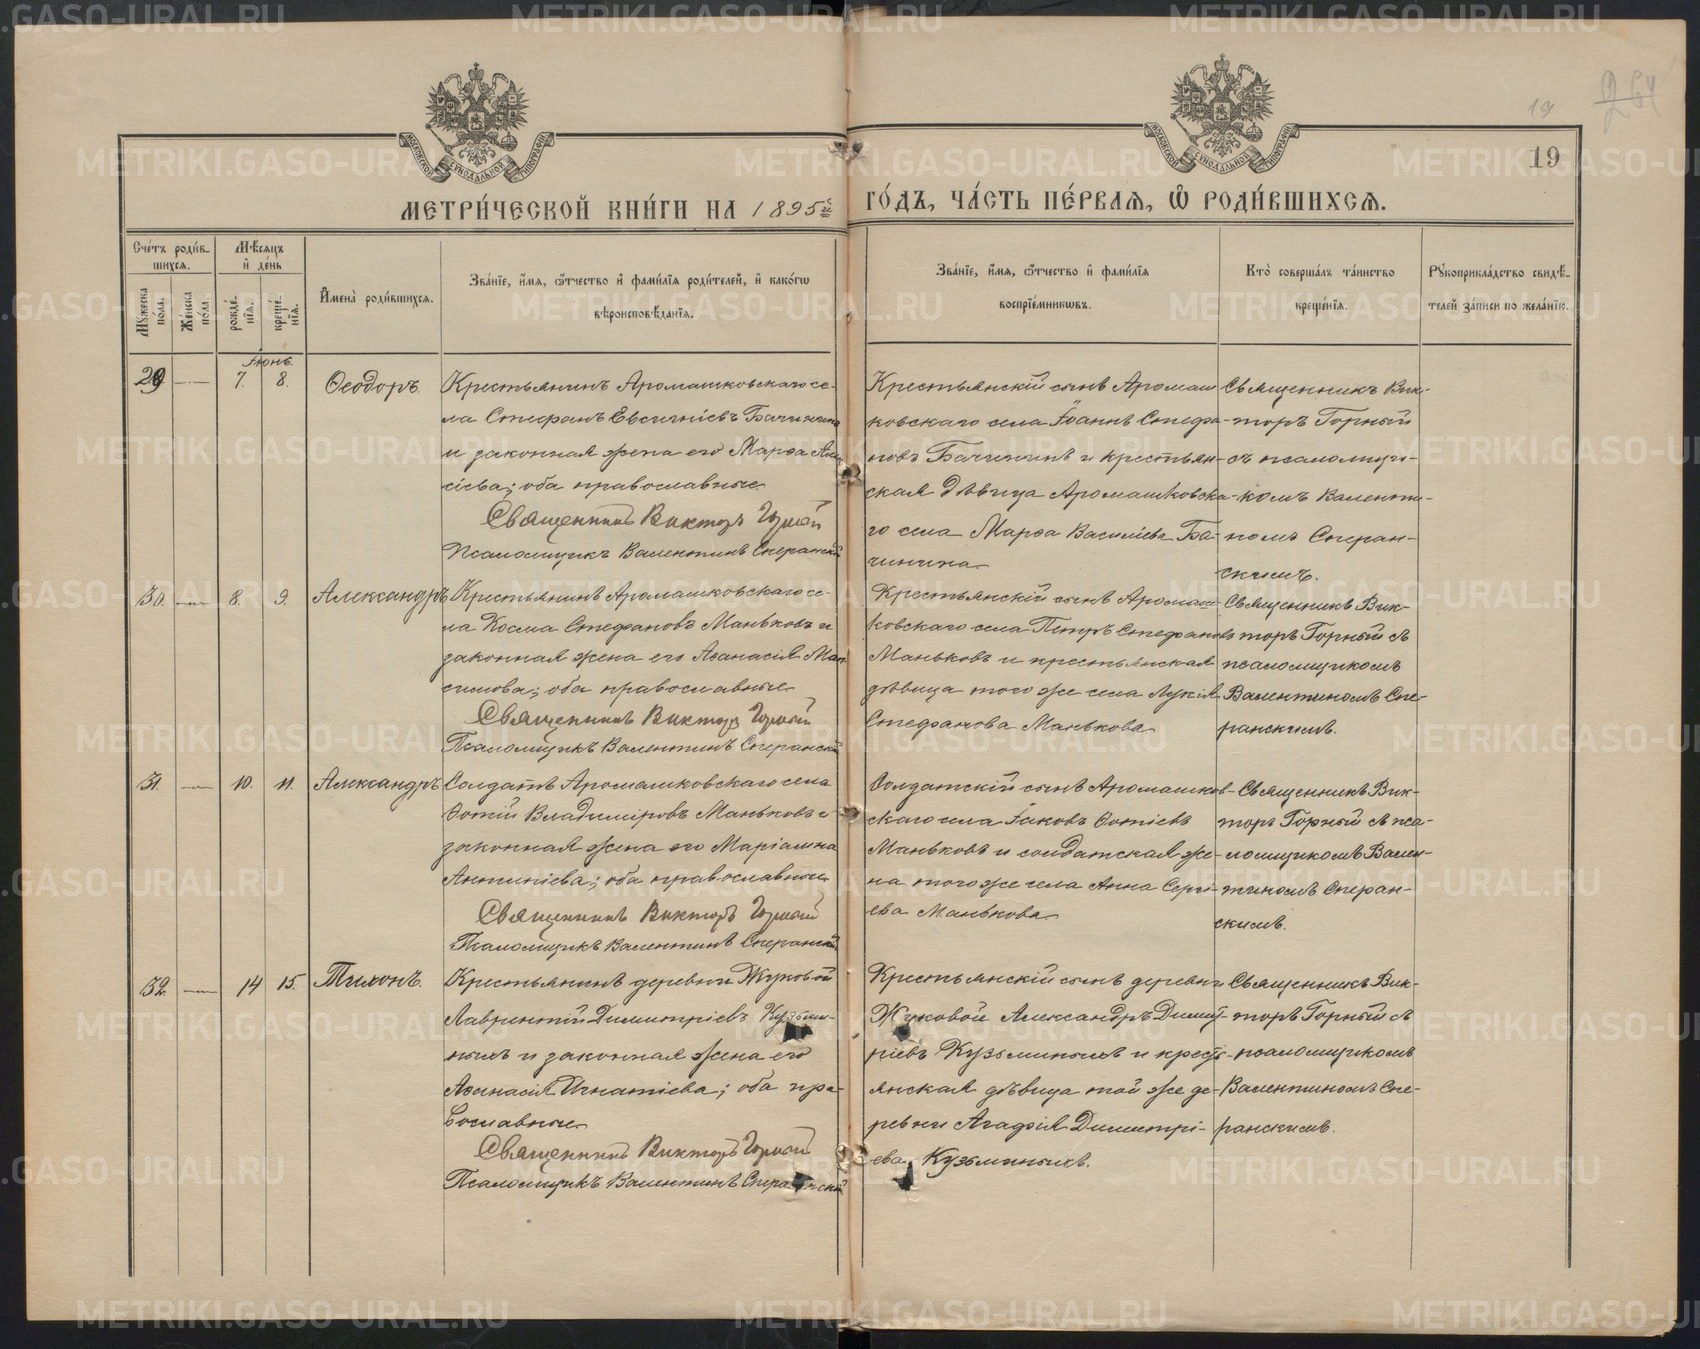 19
19
МЕТРИ́ЧЕСКОЙ КНИ́ГИ НА 1895й ГО́ДЪ, ЧА́СТЬ ПЕ́РВАЯ, Ѽ РОДИ́ВШИХСЯ.
Сче́тъ роди́в-
шихся.
Мѣ́сяцъ
и҆ де́нь
Мꙋ́жеска
по́ла.
Же́нска
по́ла.
рожде́-
нїѧ.
креще́-
нїѧ.
И҆мена̀ роди́вшихся.
Зва́нїе, и҆́мя, ѻ҆́тчество и҆ фами́лїя роди́телей, и҆ како́гѡ
вѣроисповѣ́данїя.
Зва́нїе, и҆́мя, ѻ҆́тчество и҆ фами́лїя
воспрїе́мникѡвъ.
Кто̀ соверша́лъ та́инство
креще́нїя.
Рꙋкоприкла́дство свидѣ́-
телей за́писи по жела́нїю.
Іюнь.
29 — 7. 8. Ѳеодоръ.
Крестьянинъ Аромашковскаго се-
ла Стефанъ Евсигніевъ Бачининъ
и законная жена его Марѳа
сіева; оба православные
Священникъ Викторъ Горный
Псаломщикъ Валентинъ Сперанскій
Крестьянскій сынъ Аромаш
ковскаго села Іоаннъ Стефа-
новъ Бачининъ и крестьян-
ская дѣвица Аромашковска-
го села Марѳа Василіева Ба-
чинина
Священникъ Вик-
торъ Горный
съ псаломщи-
комъ Валенти-
номъ Сперан-
скимъ.
30. — 8. 9. Александръ
Крестьянинъ Аромашковскаго се-
ла Косма Стефановъ Маньковъ и
законная жена его Аѳанасія Мак
симова; оба православные
Священникъ Викторъ Горный
Псаломщикъ Валентинъ Сперанскій
Крестьянскій сынъ Аромаш
ковскаго села Петръ Стефановъ
Маньковъ и крестьянская
дѣвица того же села Лукія
Стефанова Манькова
Священникъ Вик-
торъ Горный съ
псаломщикомъ
Валентиномъ Спе-
ранскимъ.
31. — 10. 11. Александръ
Солдатъ Аромашковскаго села
Фотій Владиміровъ Маньковъ и
законная жена его Маріамна
Антипіева; оба православные
Священникъ Викторъ Горный
Псаломщикъ Валентинъ Сперанскій
Солдатскій сынъ Аромашков-
скаго села Іаковъ Фотіевъ
Маньковъ и солдатская же-
на того же села Анна Сергі-
ева Манькова
Священникъ Вик-
торъ Горный съ пса-
ломщикомъ Вален-
тиномъ Сперан-
скимъ.
32. — 14 15. Тихонъ.
Крестьянинъ деревни Жуковой
Лаврентій Димитріевъ Кузьми-
ныхъ и законная жена его
Аѳанасія Игнатіева; оба пра-
вославные
Священникъ Викторъ Горный
Псаломщикъ Валентинъ Сперанскій
Крестьянскій сынъ деревни
Жуковой Александръ Димит-
ріевъ Кузьминыхъ и кресть-
янская дѣвица той же де-
ревни Агафія Димитрі-
ева Кузьминыхъ.
Священникъ Вик-
торъ Горный съ
псаломщикомъ
Валентиномъ Спе-
ранскимъ.
METRIKI.GASO-URAL.RU